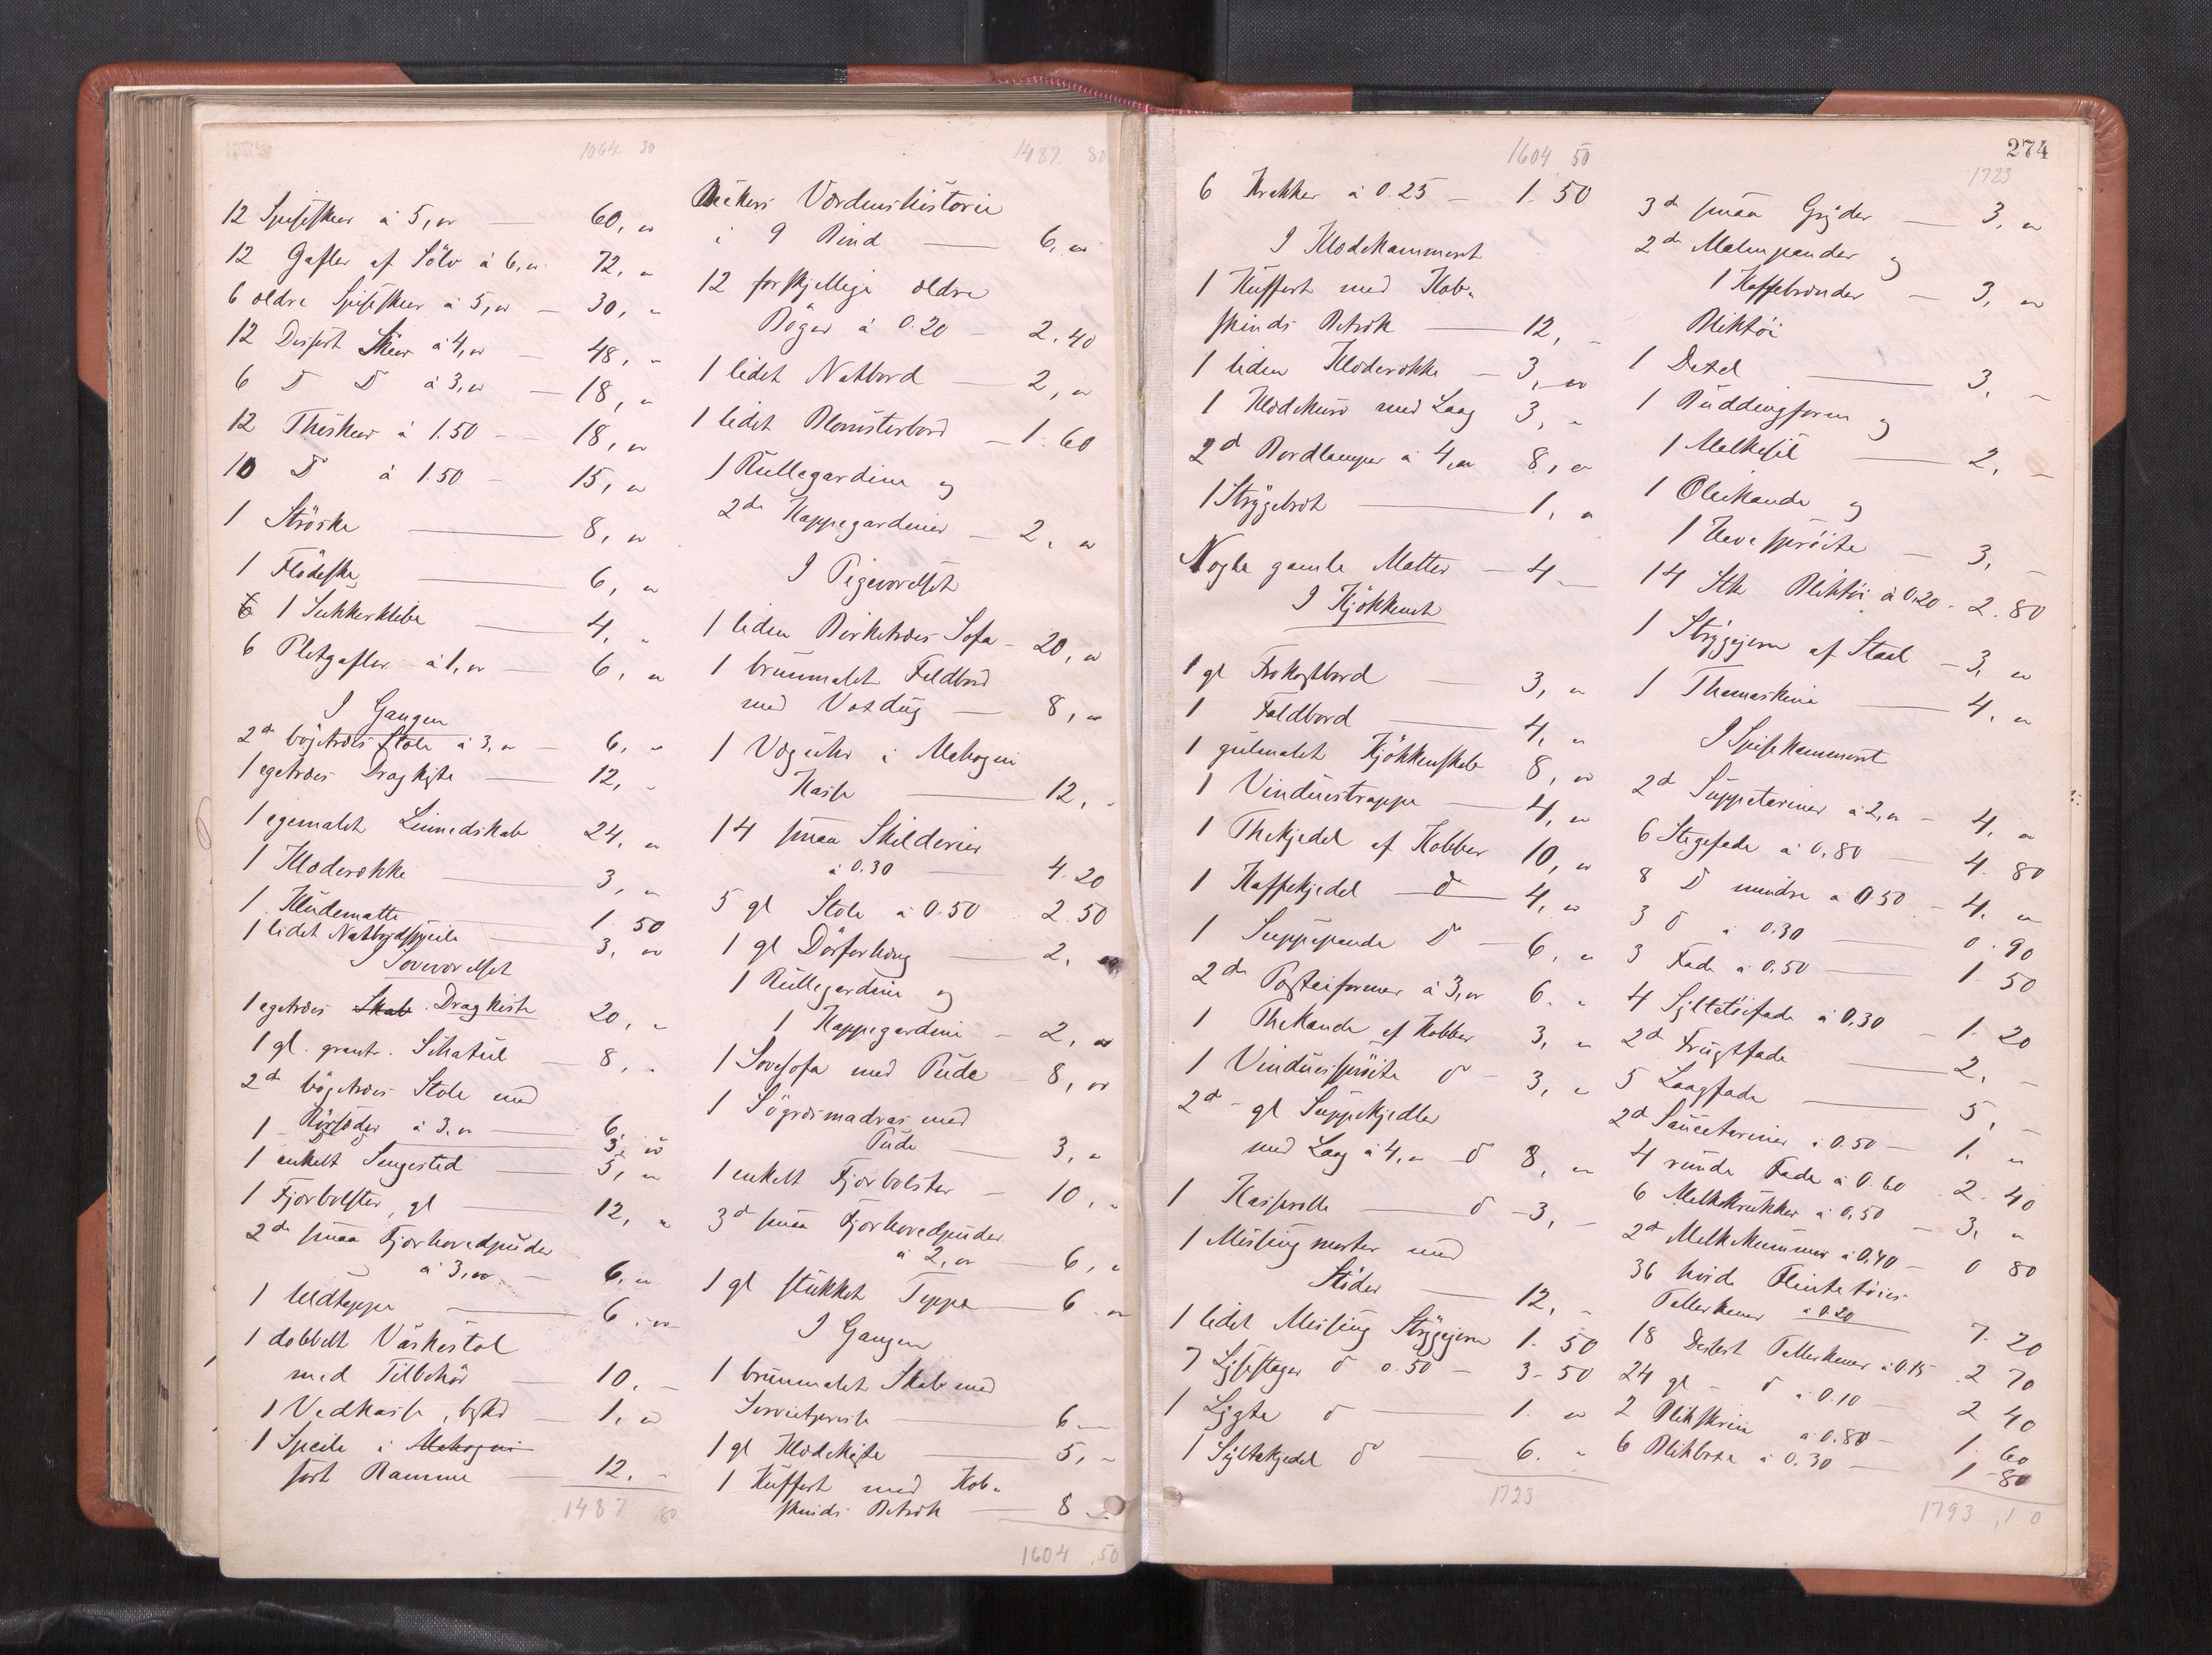 1064. 30
12 Spiseskeer à 5, " — 60, "
12 Gafler af Sölv à 6, " 72, "
6 ældre Spiseskeer à 5, " — 30, "
12 Desert Skeer à 4, " — 48, "
6 D D à 3, " — 18, "
12 Theskeer à 1.50 — 18, "
10 D à 1.50 — 15, "
1 Ströske — 8, "
1 Flödeske — 6, "
1 Sukkerklibe — 4, "
6 Pletgafler à 1, " — 6, "
I Gangen
2de bøgetræes Stole à 3, " — 6, "
1 egetræes Dragkiste — 12, "
1 egemalet Linnedskab 24, "
1 Klæderække — 3, "
1 Kludematte — 1.50
1 lidet Natbordspeile — 3, "
I Soveværelset
1 egetræes Skab Dragkiste 20, "
1 gl. grantr. Schatul — 8, "
2de bögetræes Stole med
1 Rörsæder à 3, " — 6,
3, "
1 enkelt Sengested — 5, "
1 Fjærbolster, gl — 12, "
2de smaa Fjærhovedpuder
à 3, " — 6, "
1 Uldteppe — 6, "
1 dobbelt Vaskestol
med Tilbehör — 10, –
1 Vedkasse, — 1, "
1 Speile i Mahogni
sort Ramme — 12, –
1487 80
1487. 80
Beckers Verdenshistorie
i 9 Bind — 6, "
12 forskjellige ældre
Böger à 0.20 — 2.40
1 lidet Natbord — 2, "
1 lidet Blomsterbord — 1.60
1 Rullegardine og
2de Kappegardiner — 2, "
I Pigeværelset
1 liden Birketræes Sofa — 20, "
1 brunmalet Foldbord
med Voxdug — 8, "
1 Væguhr i Mahogni
Kasse — 12, "
14 smaa Skilderier
à 0.30 — 4.20
5 gl Stole à 0.50 2.50
1 gl Dörforhæng — 2, "
1 Rullegardine og
1 Kappegardine — 2, "
1 Sovesofa med Pude — 8, "
1 Sögræsmadras med
Pude — 3, "
1 enkelt Fjærbolster — 10, "
3de smaa Fjærhovedpuder
à 2, " — 6, "
1 gl stukket Teppe — 6 "
I Gangen
1 brunmalet Skab med
Servietpresse — 6 —
1 gl Klædekiste — 5, "
1 Kuffert med Kob-
skinds Betræk — 8 –
1604 .50
274
1604 50
6 Krakker à 0.25 — 1.50
I Klædekammeret
1 Kuffert med Kob-
skinds Betræk — 12, –
1 liden Klæderække — 3, "
1 Klædekurv med Laag 3, "
2de Bordlamper à 4, " 8, "
1 Strygebræt — 1, "
Nogle gamle Matter — 4 —
I Kjökkenet
1 gl Frokostbord — 3, "
1 Foldbord — 4, "
1 gulmalet Kjökkenskab 8, "
1 Vinduestrappe — 4, "
1 Thekjedel af Kobber 10, "
1 Kaffekjedel D 4, "
1 Suppepande D — 6, "
2de Posteiformer à 3, " 6. "
1 Thekande af Kobber 3, "
1 Vinduessprøite D — 3, "
2de gl Suppekjedler
med Laag à 4, " D 8, "
1 Kasserolle — D — 3, –
1 Messing morter med
Stöder — 12, –
1 lidet Messing Strygejern 1. 50
7 Lysestager D 0.50 — 3. 50
1 Lygte D — 1. "
1 Syltekjedel D — 6. "
1723
1723
3de smaa Gryder — 3, "
2de Malmpander og
1 Kaffebrænder — 3, "
Bliktöi
1 Dexel — 3, –
1 Puddingform og
1 Melkesil — 2, –
1 Oliekande og
1 Havesprøite — 3, –
14 Stk Bliktöi à 0.20 . 2.80
1 Strygejern af Staal — 3, "
1 Themaskine — 4, "
I Spisekammeret
2de Suppeteriner à 2, " — 4, "
6 Stegefade à 0.80 — 4. 80
8 D mindre à 0.50 — 4, "
3 D à 0.30 — 0.90
3 Fade à 0.50 — 1 50
4 Syltetöifade à 0.30 — 1. 20
2de Frugtfade — 2, –
5 Laagfade — 5, –
2de Sauceteriner à 0.50 — 1. "
4 runde Fade à 0.60 2. 40
6 Melkekrukker à 0.50 — 3, "
2de Melkekummer à 0.40 — 0 80
36 hvide Flintetöies
Tallerkener à 0.20 7. 20
18 Desert Tallerkener à 0.15 2 70
24 gl — D à 0.10 — 2 40
2 Blikskrin à 0.80 — 1. 60
6 Blikboxe à 0.30 — 1 80
1793 , 10